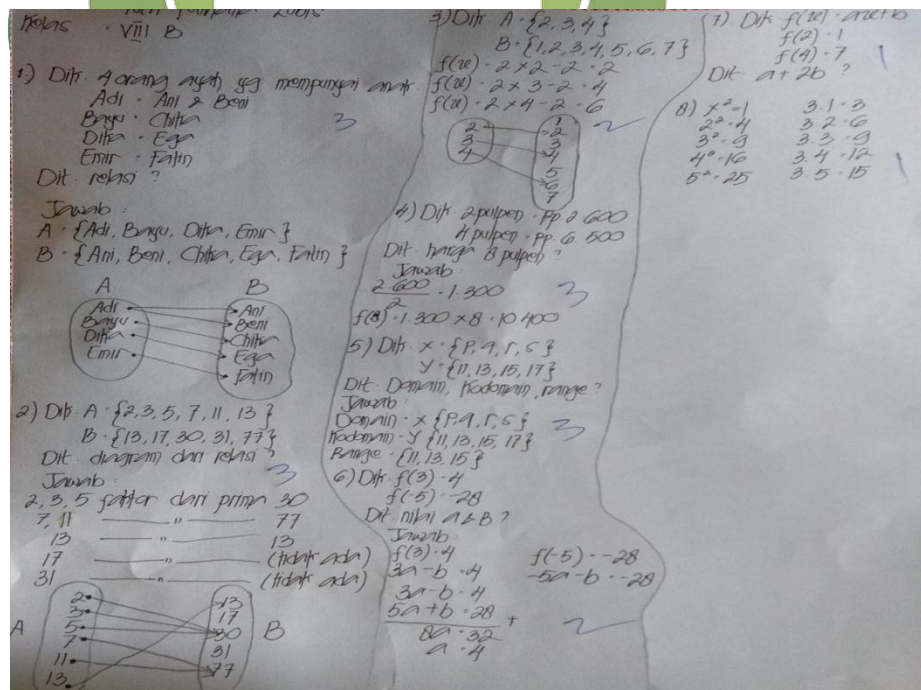 Kelas : VIII B
1.) Dik. 4 orang ayah yg mempunyai anak.
Adi = Ani & Beni
Bayu = Chika
Dika = Ega
Emir = Fatin
3
Dit. relasi ?
Jawab :
A = {Adi, Bayu, Dika, Emir}
B = {Ani, Beni, Chika, Ega, Fatin}
A B
Adi
Bayu
Dika
Emir
Ani
Beni
Chika
Ega
Fatin
2) Dik A = {2, 3, 5, 7, 11, 13}
B = {13, 17, 30, 31, 77}
Dit. diagram dari relasi ?
3
Jawab :
2, 3, 5 faktor dari prima 30
7, 11 —— " —— 77
13 —— " —— 13
17 —— " —— (tidak ada)
31 —— " —— (tidak ada)
A
2
3
5
7
11
13
13
17
30
31
77
B
3) Dik. A = {2, 3, 4}
B = {1, 2, 3, 4, 5, 6, 7}
f(x) = 2 x 2 - 2 = 2
f(x) = 2 x 3 - 2 = 4
f(x) = 2 x 4 - 2 = 6
2
3
4
1
2
3
4
5
6
7
2
4) Dik 2 pulpen = Rp. 2.600
4 pulpen = Rp. 6.500
Dit harga 8 pulpen ?
Jawab
2.600 / 2 = 1.300
3
f(8) = 1.300 x 8 = 10.400
5) Dik. X = {P, q, r, s}
Y = {11, 13, 15, 17}
Dit Domain, Kodomain, range ?
Jawab :
Domain = X {P, q, r, s}
3
Kodomain = Y {11, 13, 15, 17}
Range = {11, 13, 15}
6) Dik. f(3) = 4
f(-5) = -28
Dit nilai a & B ?
Jawab
f(3) = 4 f(-5) = -28
3a - b = 4 -5a - b = -28
3a - b = 4
5a + b = 28 +
8a = 32
a = 4
2
7. Dik f(x) = ax + b
f(2) = 1
f(4) = 7
1
Dit a + 2b ?
8) x² = 1 3.1 = 3
2² = 4 3.2 = 6
3² = 9 3.3 = 9
4² = 16 3.4 = 12
5² = 25 3.5 = 15
1